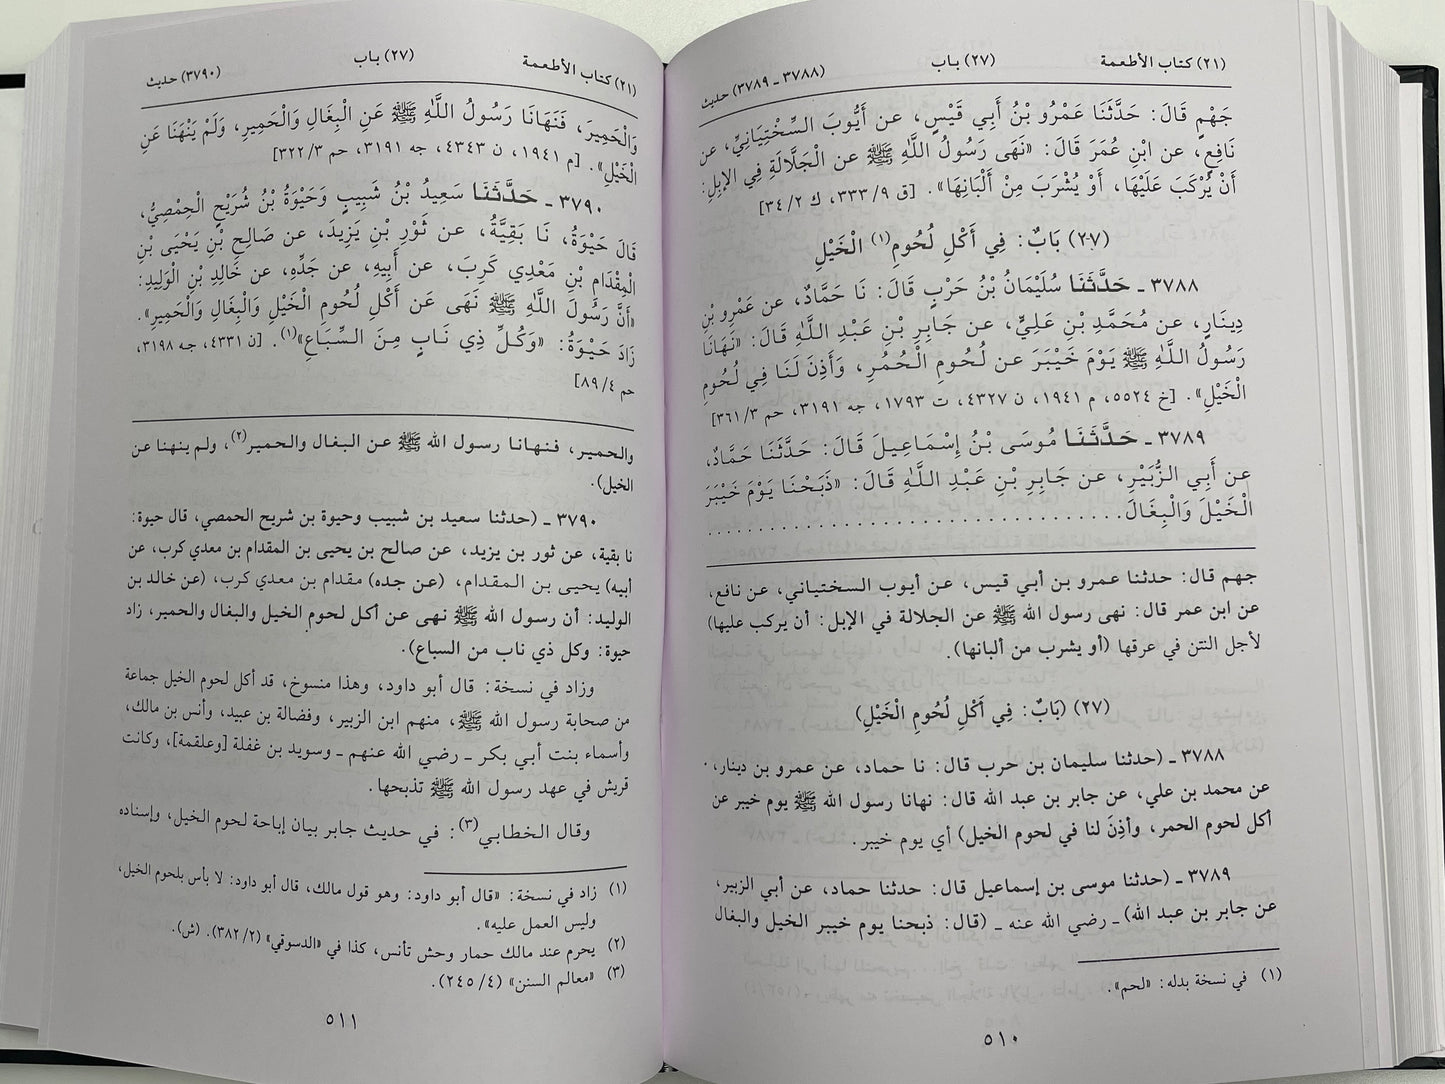 (٢١) كتاب الأطعمة (٢٧) باب (٣٧٨٨ ـ ٣٧٨٩) حديث
جَهْمٍ قَالَ: حَدَّثَنَا عَمْرُو بْنُ أَبِي قَيْسٍ، عن أَيُّوبَ السِّخْتِيَانِيِّ، عن
نَافِعٍ، عن ابْنِ عُمَرَ قَالَ: «نَهَى رَسُولُ اللَّهِ ﷺ عن الْجَلَّالَةِ فِي الإِبِلِ:
أَنْ يُرْكَبَ عَلَيْهَا، أَوْ يُشْرَبَ مِنْ أَلْبَانِهَا». [ق ٩/ ٣٣٣، ك ٢/ ٣٤]
(٢٧) بَابٌ: فِي أَكْلِ لُحُومِ(١) الْخَيْلِ
٣٧٨٨ ـ حَدَّثَنَا سُلَيْمَانُ بْنُ حَرْبٍ قَالَ: نَا حَمَّادٌ، عن عَمْرِو بْنِ
دِينَارٍ، عن مُحَمَّدِ بْنِ عَلِيٍّ، عن جَابِرِ بْنِ عَبْدِ اللَّهِ قَالَ: «نَهَانَا
رَسُولُ اللَّهِ ﷺ يَوْمَ خَيْبَرَ عن لُحُومِ الْحُمُرِ، وَأَذِنَ لَنَا فِي لُحُومِ
الْخَيْلِ». [خ ٥٥٢٤، م ١٩٤١، ن ٤٣٢٧، ت ١٧٩٣، جه ٣١٩١، حم ٣/ ٣٦١]
٣٧٨٩ ـ حَدَّثَنَا مُوسَى بْنُ إِسْمَاعِيلَ قَالَ: حَدَّثَنَا حَمَّادٌ،
عن أَبِي الزُّبَيْرِ، عن جَابِرِ بْنِ عَبْدِ اللَّهِ قَالَ: «ذَبَحْنَا يَوْمَ خَيْبَرَ
الْخَيْلَ وَالْبِغَالَ..............................
جهم قال: حدثنا عمرو بن أبي قيس، عن أيوب السختياني، عن نافع،
عن ابن عمر قال: نهى رسول الله ﷺ عن الجلالة في الإبل: أن يركب عليها)
لأجل النتن في عرقها (أو يشرب من ألبانها).
(٢٧) (بَابٌ: فِي أَكْلِ لُحُومِ الْخَيْلِ)
٣٧٨٨ ـ (حدثنا سليمان بن حرب قال: نا حماد، عن عمرو بن دينار،
عن محمد بن علي، عن جابر بن عبد الله قال: نهانا رسول الله ﷺ يوم خيبر عن
أكل لحوم الحمر، وأذِنَ لنا في لحوم الخيل) أي يوم خيبر.
٣٧٨٩ ـ (حدثنا موسى بن إسماعيل قال: حدثنا حماد، عن أبي الزبير،
عن جابر بن عبد الله) ـ رضي الله عنه ـ (قال: ذبحنا يوم خيبر الخيل والبغال
(١) في نسخة بدله: «لحم».
٥١٠
(٢١) كتاب الأطعمة (٢٧) باب (٣٧٩٠) حديث
وَالْحَمِيرَ، فَنَهَانَا رَسُولُ اللَّهِ ﷺ عَنِ الْبِغَالِ وَالْحَمِيرِ، وَلَمْ يَنْهَنَا عَنِ
الْخَيْلِ». [م ١٩٤١، ن ٤٣٤٣، جه ٣١٩١، حم ٣/ ٣٢٢]
٣٧٩٠ ـ حَدَّثَنَا سَعِيدُ بْنُ شَبِيبٍ وَحَيْوَةُ بْنُ شُرَيْحٍ الْحِمْصِيُّ،
قَالَ حَيْوَةُ، نَا بَقِيَّةُ، عن ثَوْرِ بْنِ يَزِيدَ، عن صَالِحِ بْنِ يَحْيَى بْنِ
الْمِقْدَامِ بْنِ مَعْدِي كَرِبَ، عن أَبِيهِ، عن جَدِّهِ، عن خَالِدِ بْنِ الْوَلِيدِ:
«أَنَّ رَسُولَ اللَّهِ ﷺ نَهَى عَن أَكْلِ لُحُومِ الْخَيْلِ وَالْبِغَالِ وَالْحَمِيرِ».
زَادَ حَيْوَةُ: «وَكُلِّ ذِي نَابٍ مِنَ السِّبَاعِ»(١). [ن ٤٣٣١، جه ٣١٩٨،
حم ٤/ ٨٩]
والحمير، فنهانا رسول الله ﷺ عن البغال والحمير(٢)، ولم ينهنا عن
الخيل).
٣٧٩٠ ـ (حدثنا سعيد بن شبيب وحيوة بن شريح الحمصي، قال حيوة:
نا بقية، عن ثور بن يزيد، عن صالح بن يحيى بن المقدام بن معدي كرب، عن
أبيه) يحيى بن المقدام، (عن جده) مقدام بن معدي كرب، (عن خالد بن
الوليد: أن رسول الله ﷺ نهى عن أكل لحوم الخيل والبغال والحمير، زاد
حيوة: وكل ذي ناب من السباع).
وزاد في نسخة: قال أبو داود، وهذا منسوخ، قد أكل لحوم الخيل جماعة
من صحابة رسول الله ﷺ، منهم ابن الزبير، وفضالة بن عبيد، وأنس بن مالك،
وأسماء بنت أبي بكر ـ رضي الله عنهم ـ وسويد بن غفلة [وعلقمة]، وكانت
قريش في عهد رسول الله ﷺ تذبحها.
وقال الخطابي(٣): في حديث جابر بيان إباحة لحوم الخيل، وإسناده
(١) زاد في نسخة: «قال أبو داود: وهو قول مالك، قال أبو داود: لا بأس بلحوم الخيل،
وليس العمل عليه».
(٢) يحرم عند مالك حمار وحش تأنس، كذا في «الدسوقي» (٢/ ٣٨٢). (ش).
(٣) «معالم السنن» (٤/ ٢٤٥).
٥١١